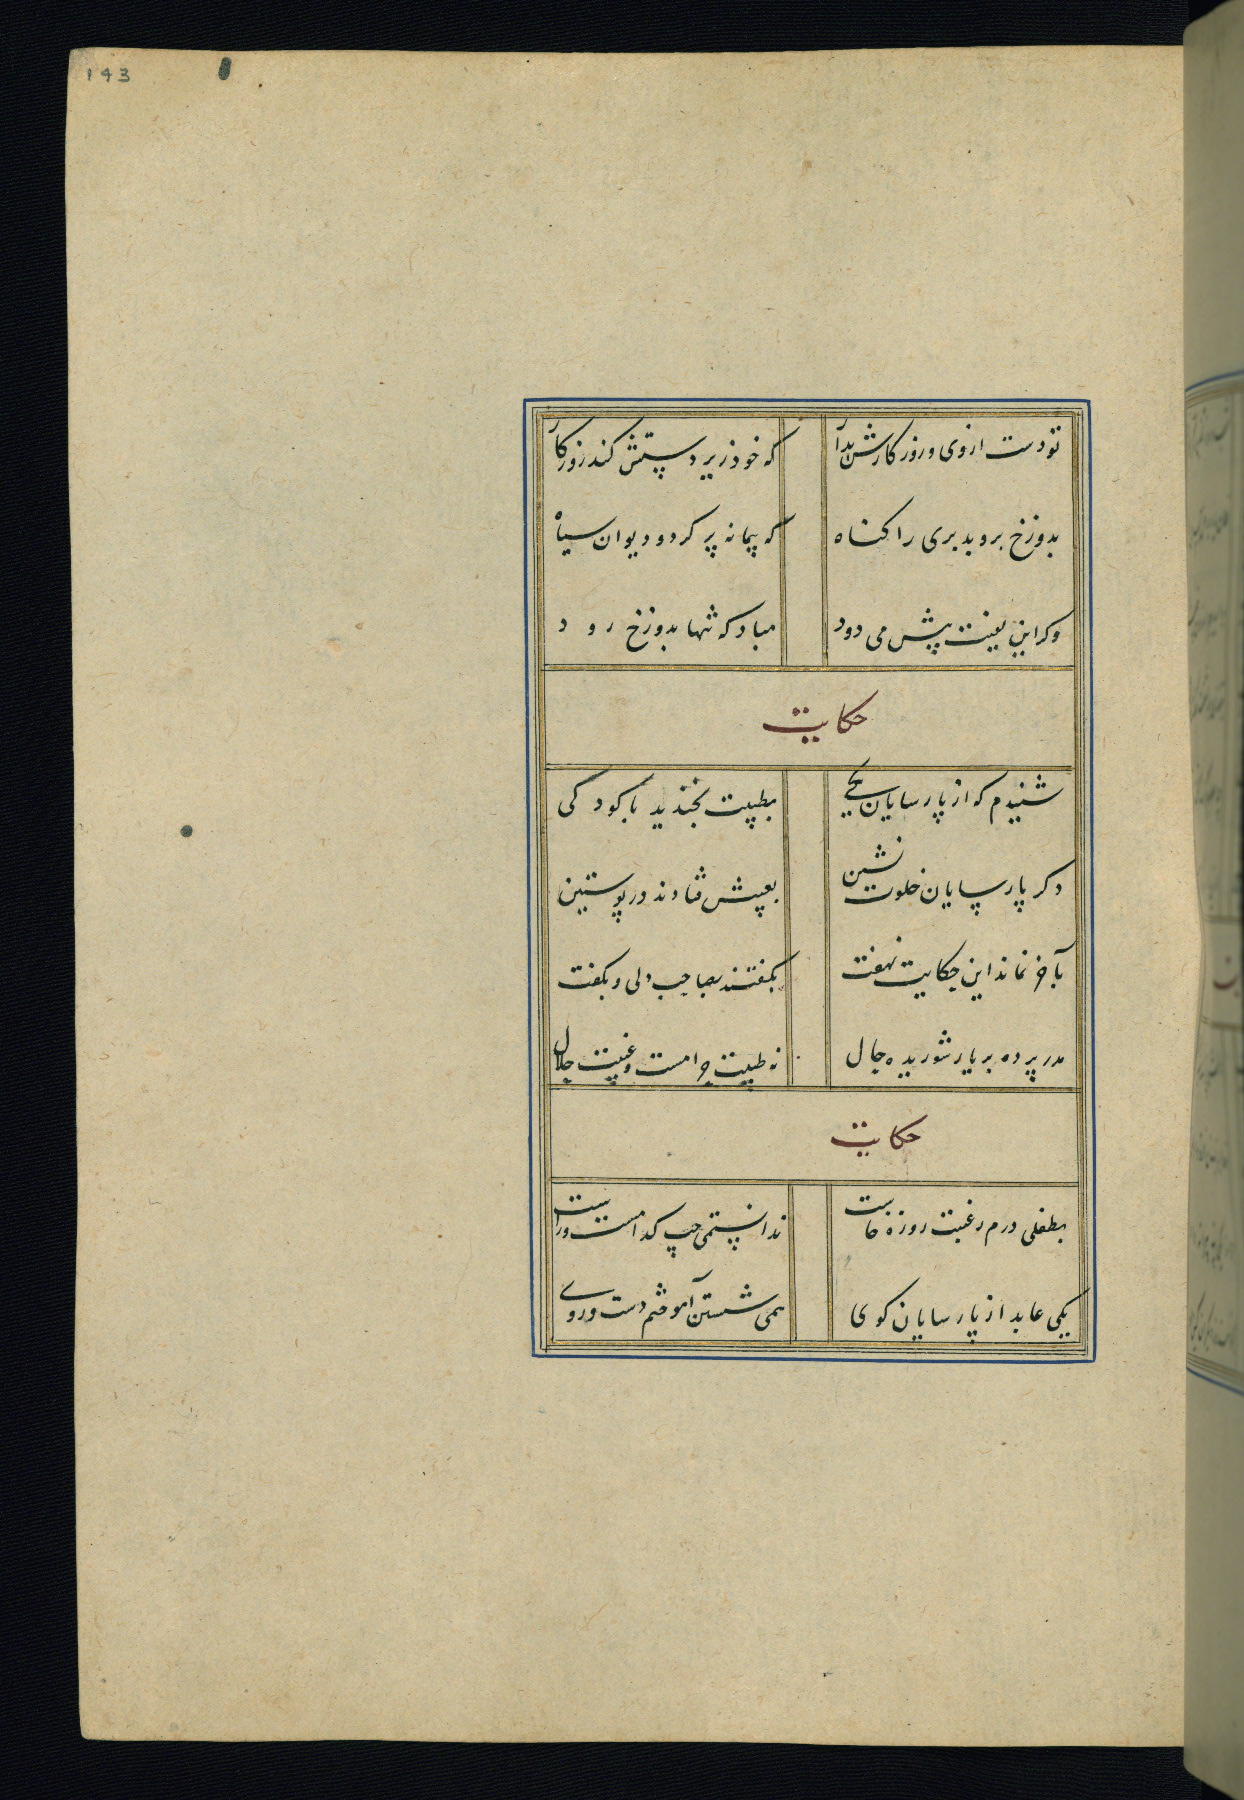 143
تو دست از وی و روزکارش بدار
که خود زیر دستش کند روزکار
بدوزخ برو بدبری را کناه
که پیمانه پر کرد و دیوان سیاه
وکر این بغیبت پیش می دود
مبادکه تنها بدوزخ رود
حکایت
شنیدم که از پارسایان یکی
بطیبت بخندید با کودکی
دکر پارسایان خلوت نشین
بعیبش فتادند در پوستین
بآخر نماند این حکایت نهفت
بکفتند بصاحب دلی و بکفت
مدر پرده بر یار شوریده حال
نه طیبت حرامست و غیبت حلال
حکایت
بطفلی درم رغبت روزه خاست
ندانستمی چپ کدامست و راست
یکی عابد از پارسایان کوی
همی شستن آموختم دست و روی